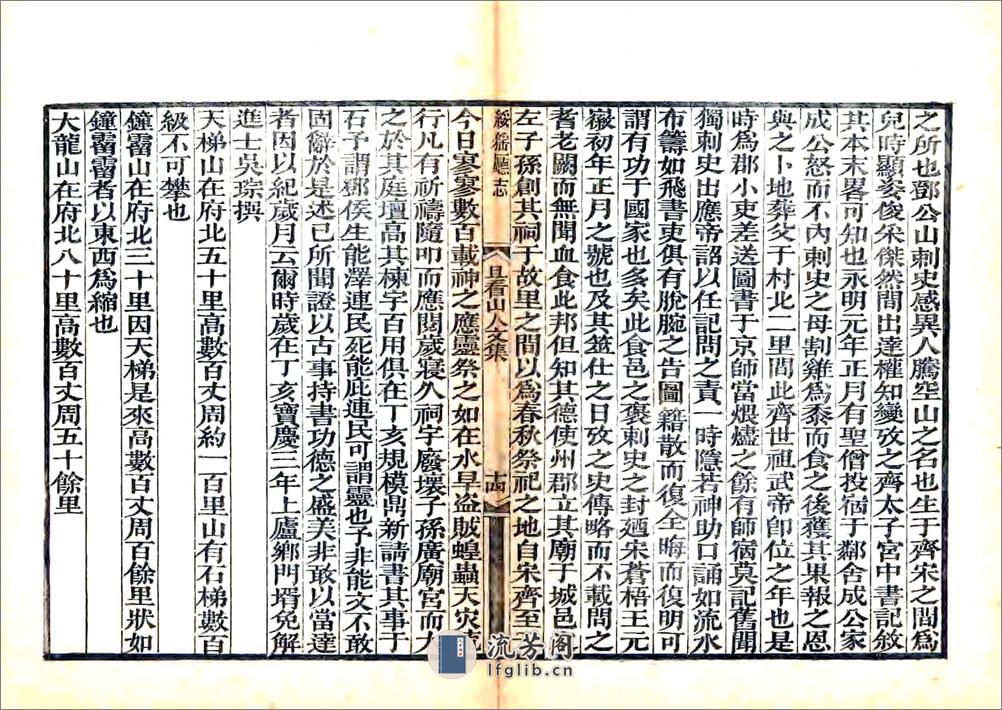 之所也鄧公山刺史感異人騰空山之名也生于齊宋之間爲
兒時顯姿俊采傑然間出達權知變攷之齊太子宮中書記敘
其本末畧可知也永明元年正月有聖僧投宿于鄰舍成公家
成公怒而不內刺史之母割雞爲黍而食之後獲其果報之恩
與之卜地葬父于村北二里間此齊世祖武帝卽位之年也是
時爲郡小吏差送圖書于京師當煨燼之餘有師宿莫記舊聞
獨刺史出應帝詔以任記問之責一時隱若神助口誦如流水
布籌如飛書吏俱有脫腕之告圖籍散而復全晦而復明可
謂有功于國家也多矣此食邑之褒刺史之封廼宋蒼梧王元
嶶初年正月之號也及其筮仕之日攷之史傳略而不載問之
耆老闕而無聞血食此邦但知其德使州郡立其廟于城邑
左子孫創其祠于故里之間以爲春秋祭祀之地自宋齊至
綏猺廳志
且看山人文集
十四
今日寥寥數百載神之應靈祭之如在水旱盗賊蝗蟲天灾
行凡有祈禱隨叩而應閱歲寢久祠宇廢壞子孫廣廟宮而大
之於其庭壇高其棟宇百用俱在丁亥規模鼎新請書其事于
石予謂鄧侯生能澤連民死能庇連民可謂靈也予非能文不敢
固辭於是述已所聞證以古事持書功德之盛美非敢以當達
者因以紀歲月云爾時歲在丁亥寶慶三年上廬鄉門壻免解
進士吳琮撰
天梯山在府北五十里高數百丈周約一百里山有石梯數百
級不可攀也
鐘雷山在府北三十里因天梯是來高數百丈周百餘里狀如
鐘雷雷者以東西爲縮也
大龍山在府北八十里高數百丈周五十餘里
流芳阁
lfglib.cn